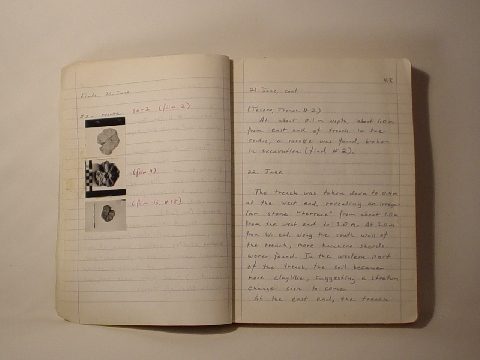 Finds 21 June
5A-2 (film 2)
6(film 4)
21 June cont
(Tacoma, Trench # 2)
At about 0.1 m depth, about 1.0 m
from east end of trench in the
center, a rosette was found, broken
in excavation (find # 2).
22 June
The trench was taken down to 0.5 m
at the west end, revealing an irregu-
lar stone "terrace" from about 1.0 m
from the west end to 3.0 m. At 3.0 m
from W. end, along the south wall of
the trench, more bucchero sherds
were found. In the western part
of the trench, the soil became
more claylike, suggesting a stratum
change soon to come.
At the east end, the trench